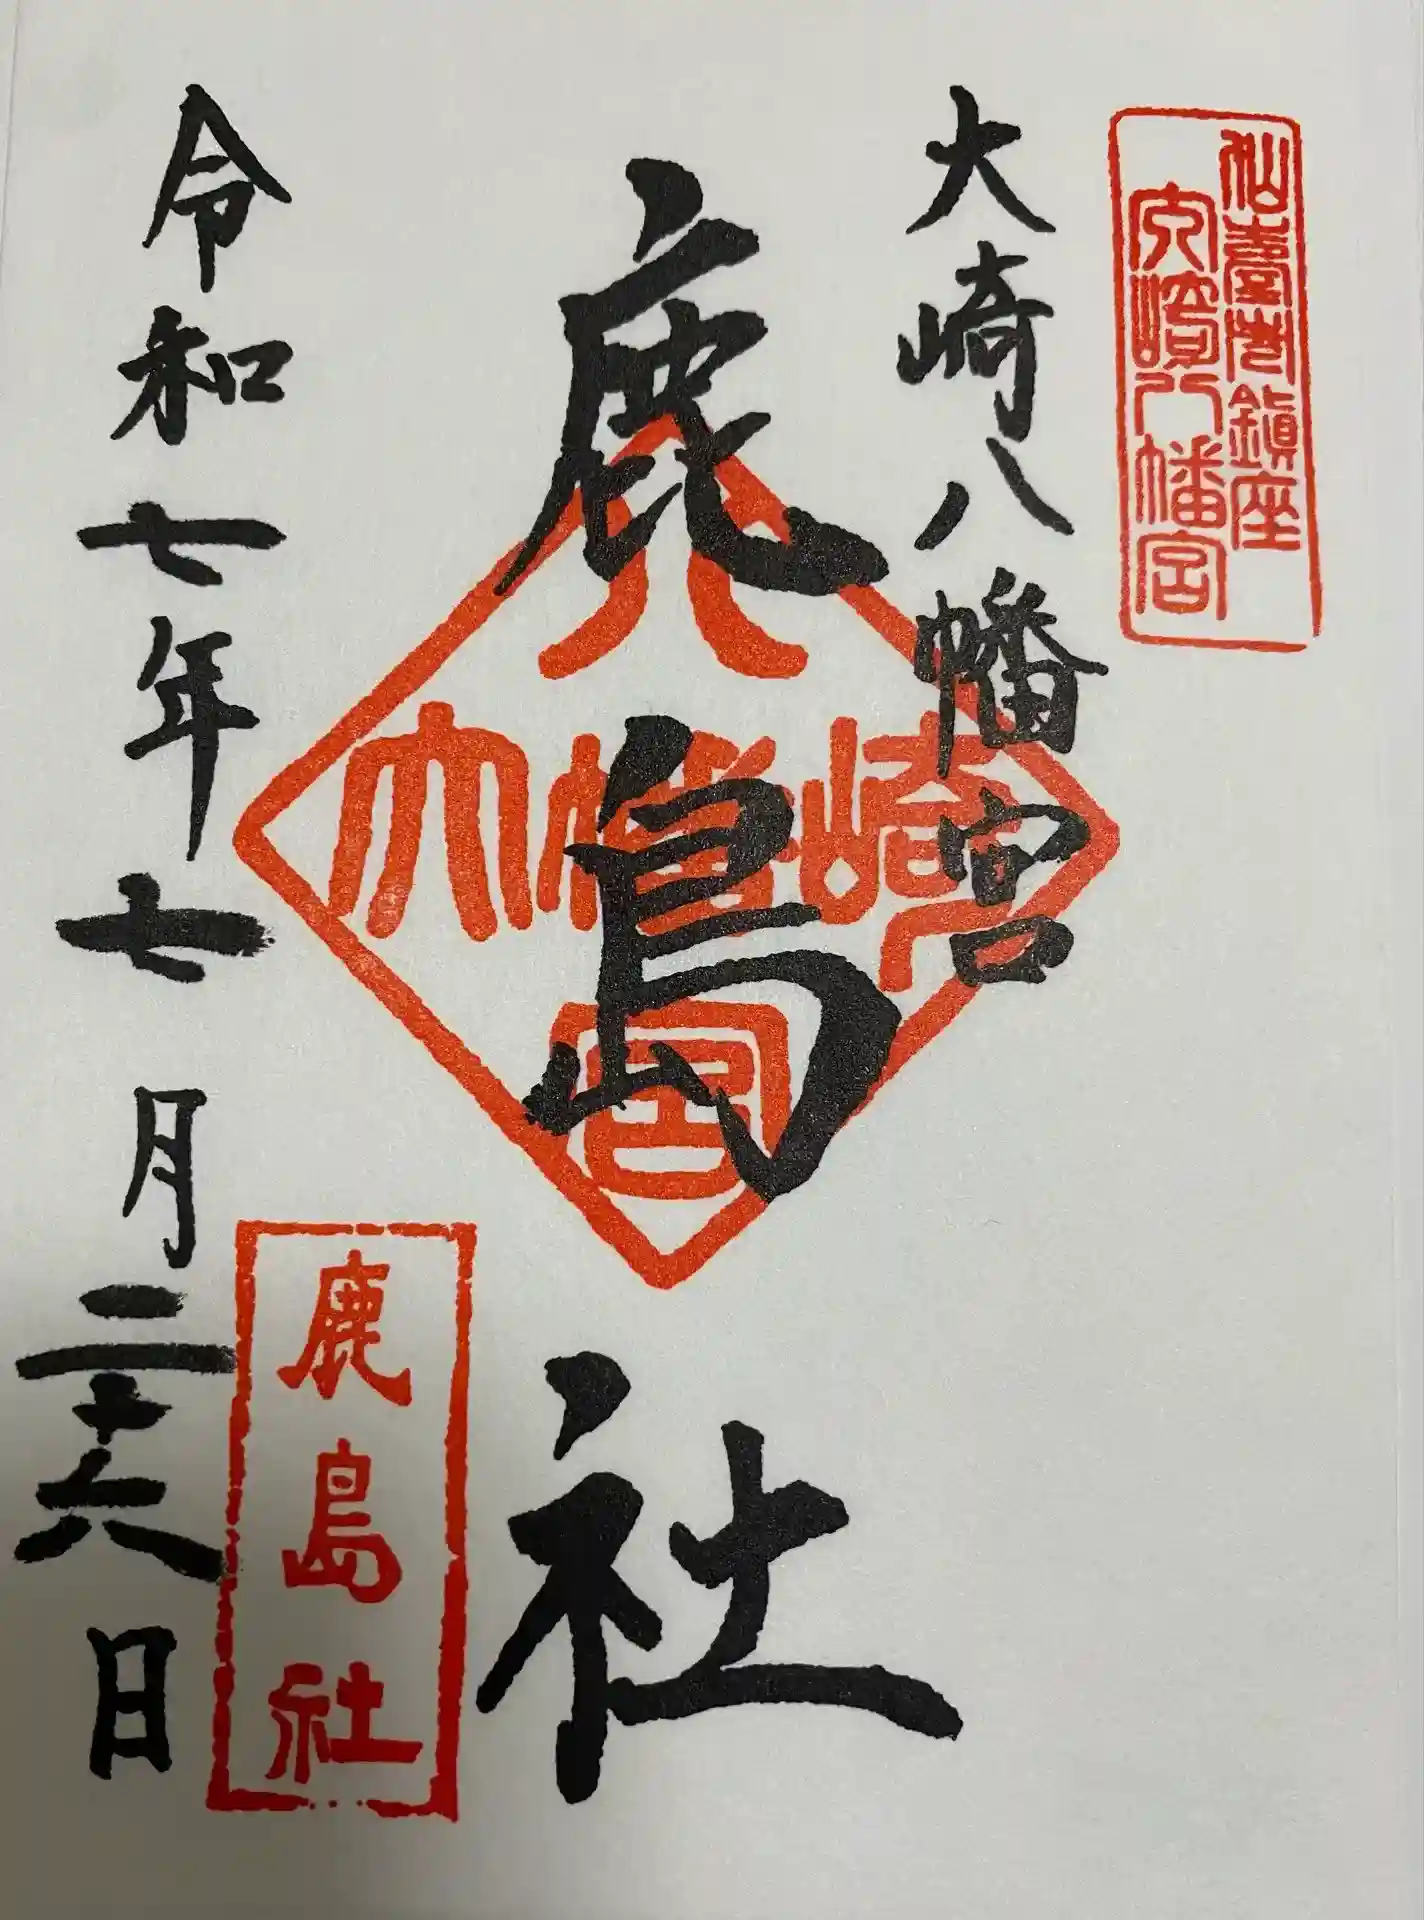 仙臺總鎮座
大崎八幡宮
大崎八幡宮
鹿島社
八
大幡崎
宮
鹿島社
令和七年七月二十六日